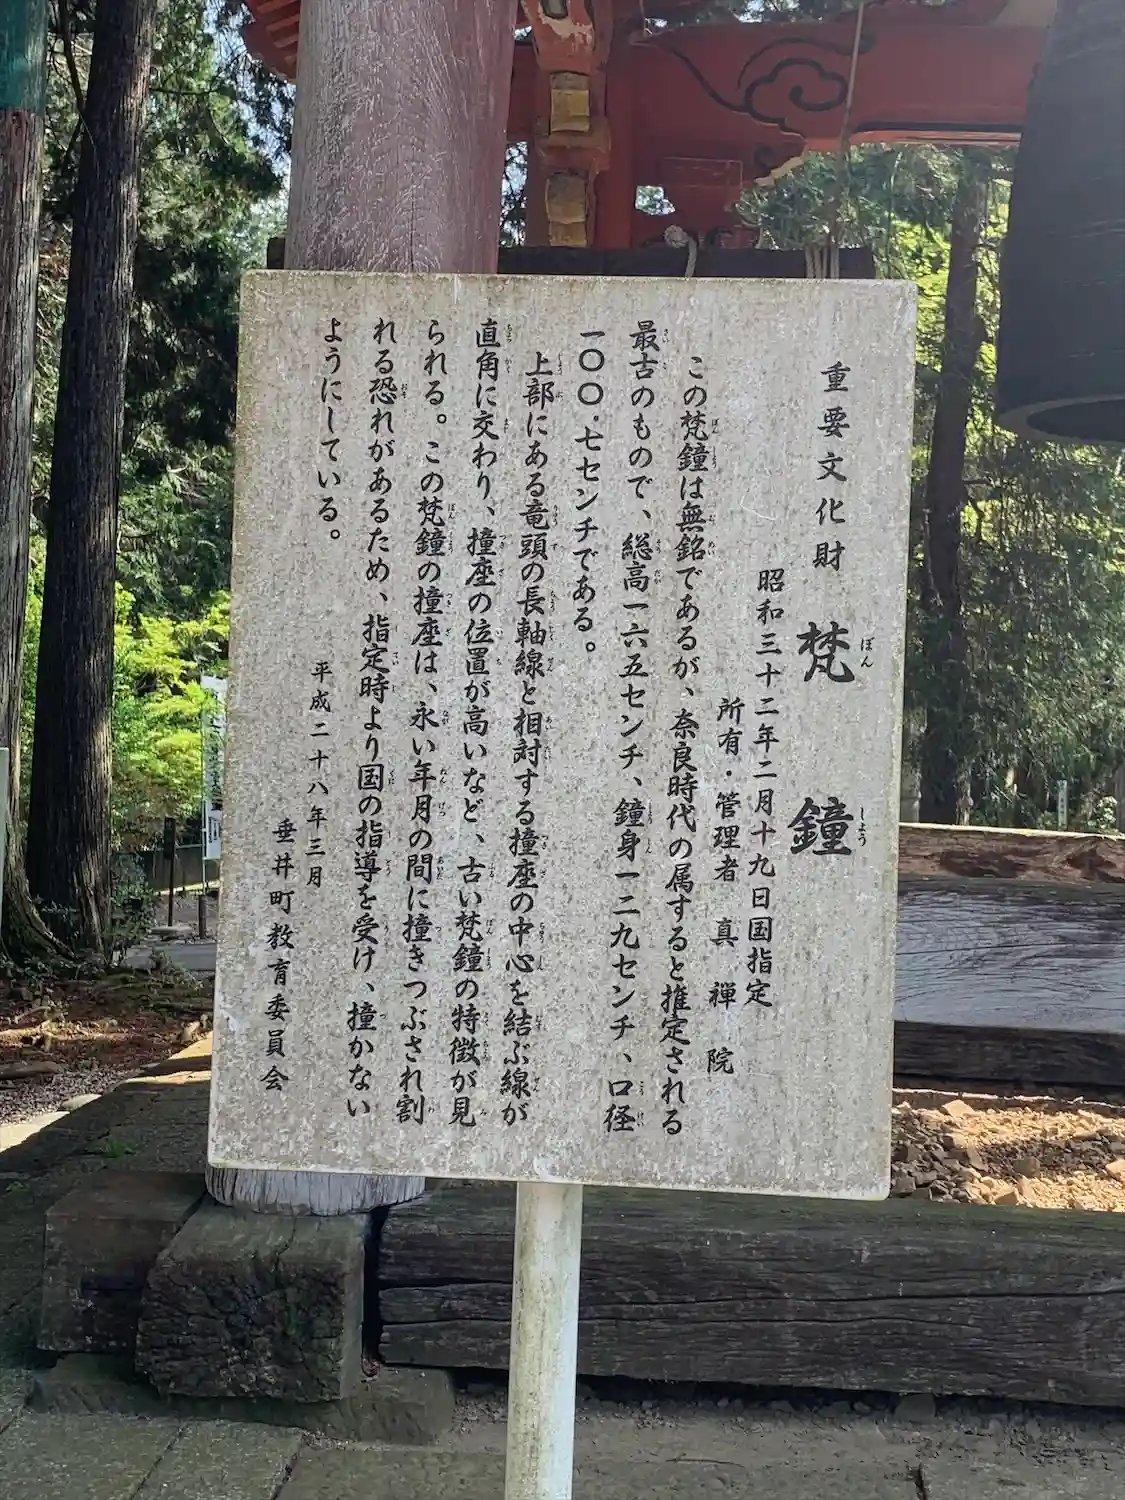 重要文化財 梵鐘
昭和三十二年二月十九日国指定
所有・管理者 真禅院
この梵鐘は無銘であるが、奈良時代の属すると推定される
最古のもので、総高一六五センチ、鐘身一二九センチ、口径
一〇〇・七センチである。
上部にある竜頭の長軸線と相対する撞座の中心を結ぶ線が
直角に交わり、撞座の位置が高いなど、古い梵鐘の特徴が見
られる。この梵鐘の撞座は、永い年月の間に撞きつぶされ割
れる恐れがあるため、指定時より国の指導を受け、撞かない
ようにしている。
平成二十八年三月
垂井町教育委員会